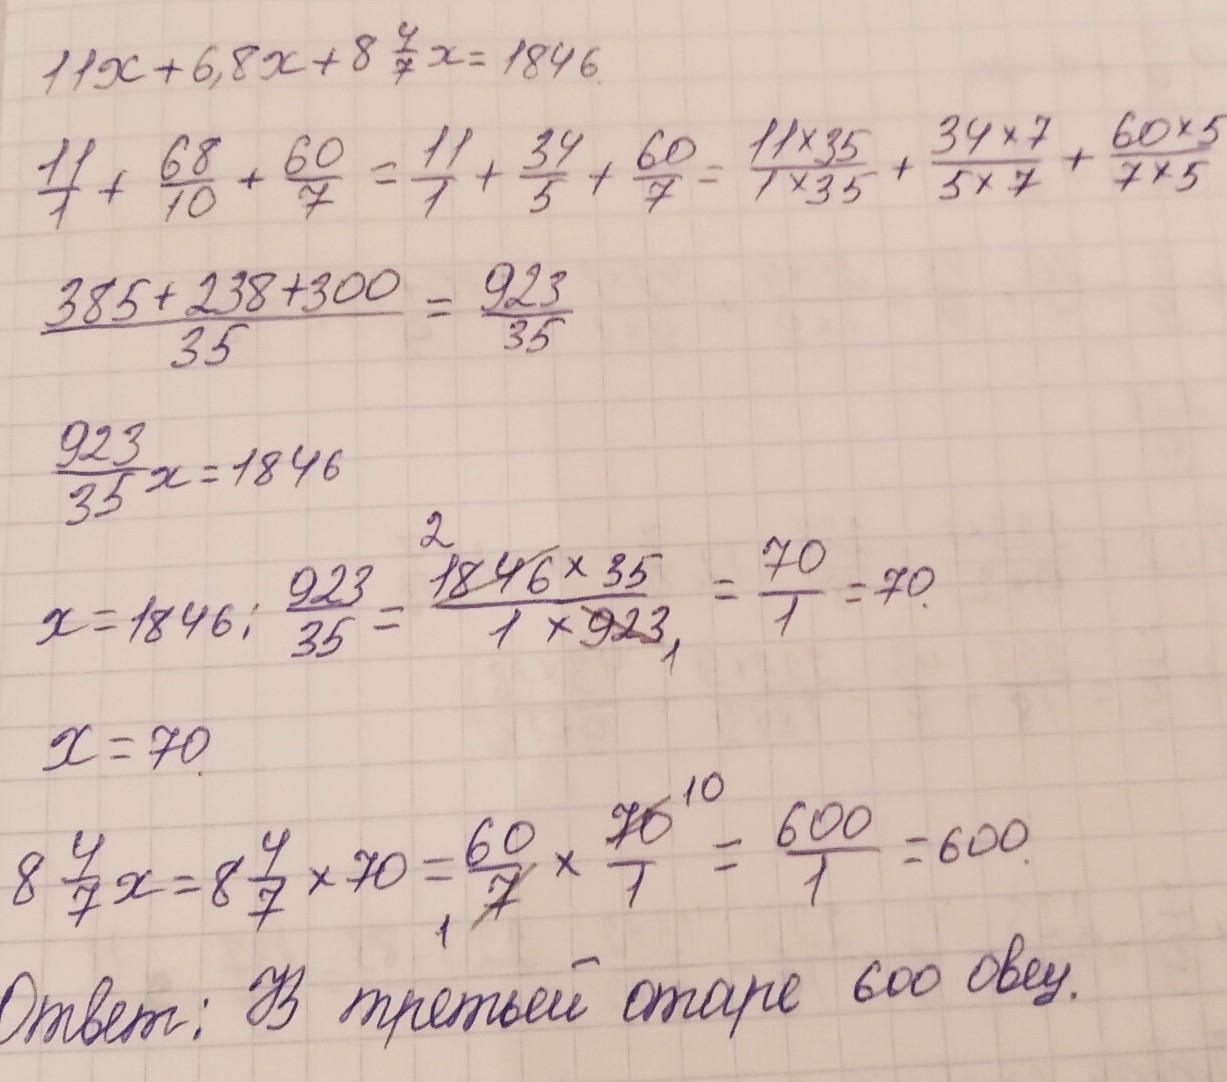 11x + 6,8x + 8 4/7 x = 1846.
11/1 + 68/10 + 60/7 = 11/1 + 34/5 + 60/7 = 11×35/1×35 + 34×7/5×7 + 60×5/7×5
385+238+300/35 = 923/35
923/35 x = 1846
x = 1846 : 923/35 = 2 1846 × 35/1 × 923 1 = 70/1 = 70.
x = 70.
8 4/7 x = 8 4/7 × 70 = 60/7 1 × 70 10/1 = 600/1 = 600.
Ответ: В третьей отаре 600 овец.